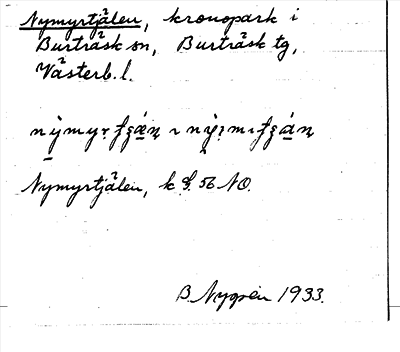 Nymyrtjälen, kronopark i
Burträsk sn, Burträsk tg,
Västerb. l.
Nymyrtjälen, k 56 NO.
B. Nygren 1933.